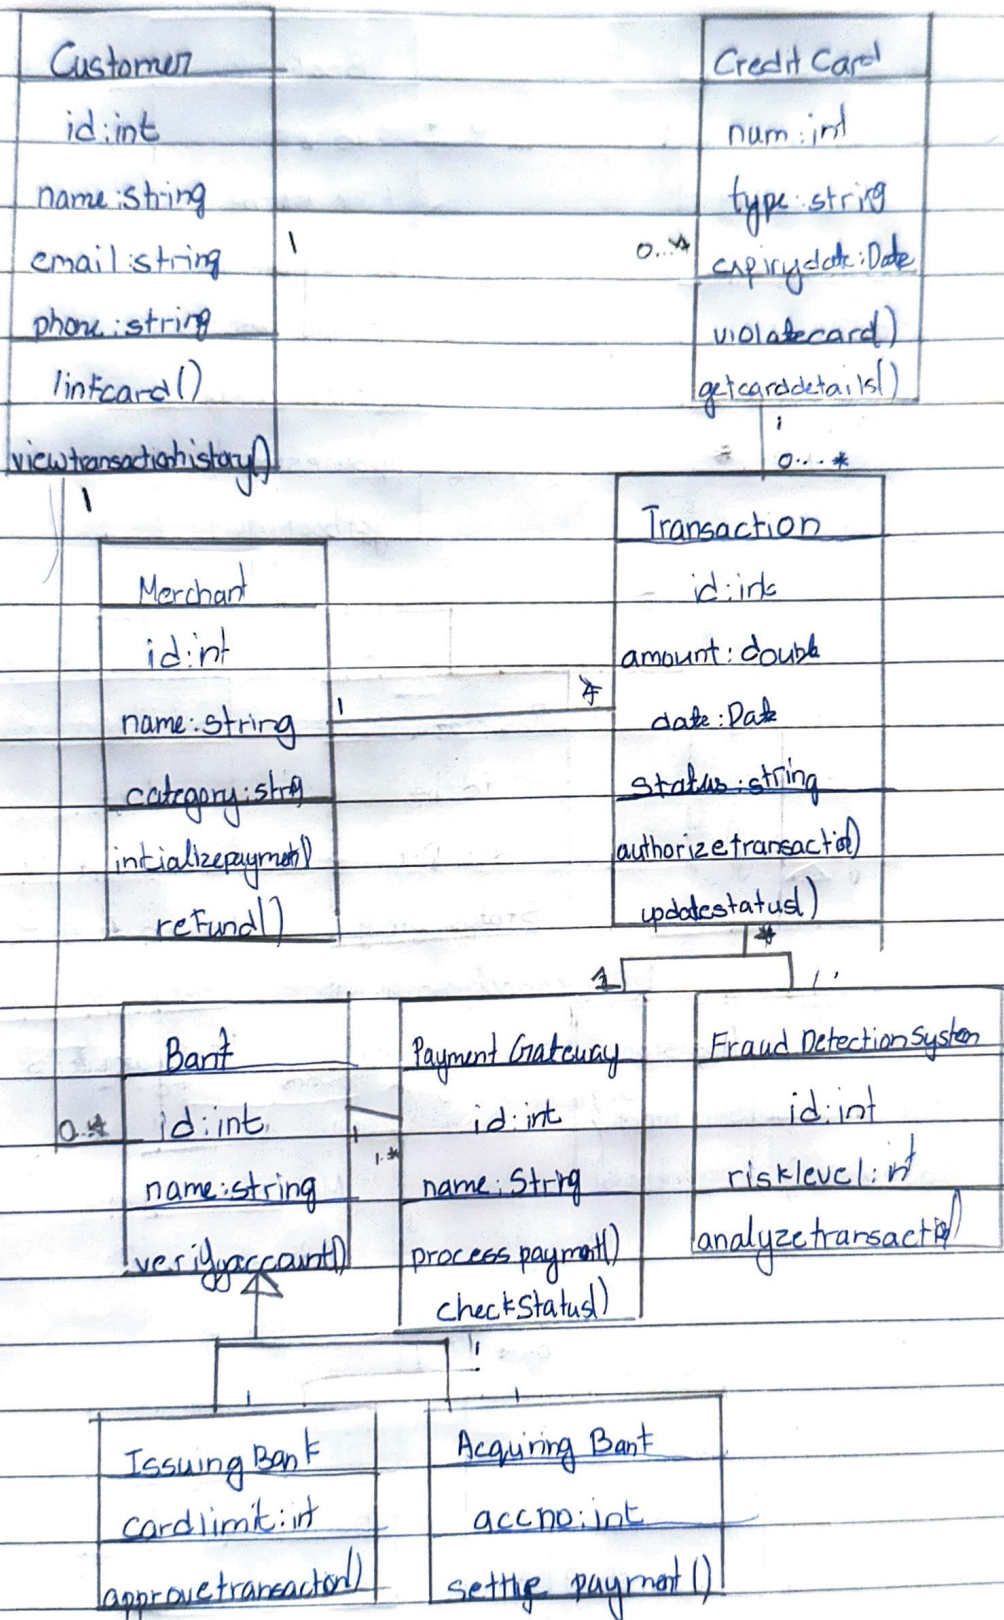 Customer
id:int
name:string
email:string
phone:string
linkcard()
viewtransactionhistory()
1
0...*
Credit Card
num:int
type:string
expirydate:Date
violatecard()
getcarddetails()
1
0...*
1
Merchant
id:int
name:string
category:strng
intializepayment()
refund()
1
*
Transaction
id:int
amount:double
date:Date
status:string
authorizetransactio()
updatestatus()
*
1
1
0..*
Bank
id:int
name:string
verifyaccount()
1
1.*
Payment Gateway
id:int
name:Strng
process payment()
checkStatus()
Fraud Detection System
id:int
risklevel:int
analyzetransactio()
Issuing Bank
cardlimit:int
approvetransacton()
1
1
Acquiring Bank
accno:int
settle payment()